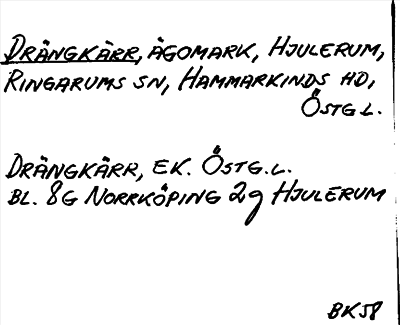 DRÄNGKÄRR, ÄGOMARK, HJULERUM,
RINGARUMS SN, HAMMARKINDS HD,
ÖSTGL.
DRÄNGKÄRR, EK. ÖSTG.L.
BL. 8G NORRKÖPING 2g HJULERUM
BK58